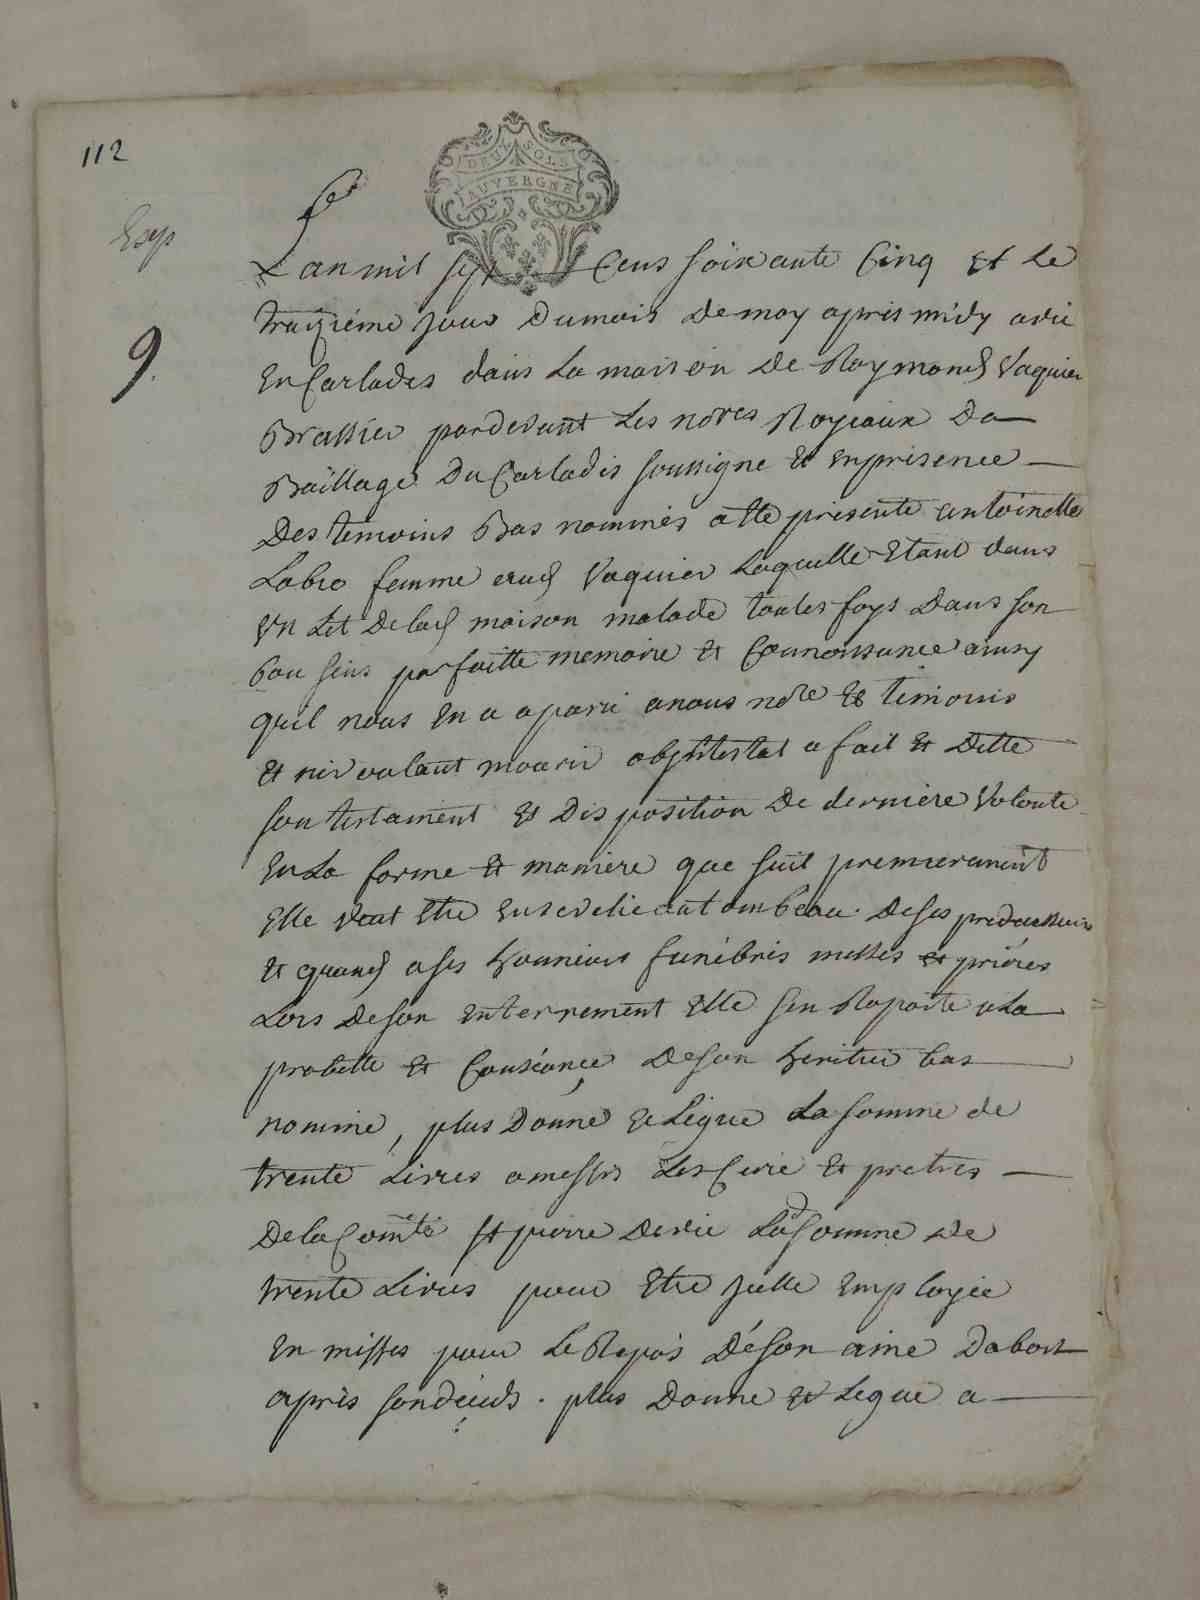 112
DEUX SOLS
AUVERGNE
Exp
9.
Lan mil sept Cens soixante Cinq et Le
treizième jour Dumois Demay apres midy a vic
En Carlades dans La maison De Raymond Vaquier
Brassier pardevant Les no.res Royeaux Du
Baillage Du Carladés soussigne Et en presence
Des temoins Bas nommés a Ete presente antoinette
Labro femme aud Vaquier Laquelle Etant dans
Vn Lit De lad maison malade toutes foys Dans son
bon sens parfaitte memoire et Connoissance ainsy
quil nous En a aparu a nous no.re Et temoins
Et ne voulant mourir abjntestat a fait Et Ditte
son testament Et Disposition De derniere Volonte
En La forme Et maniere que suit premierement
Elle veut Etre Ensevelie au tombeau De ses predecesseurs
Et quand a ses honneurs funébrés messes et priéres
Lors De son Enterrement Elle sen Raporte a La
probitte Et Consiance De son heritier bas
nommé, plus Donne Et Légue La somme de
trente Livres a messrs Les Curé Et pretres
De la Com.té St pierre De vic Lad somme de
trente Livres pour Etre jcelle Employée
En messes pour Le Repos De son ame Dabort
aprés son décéds. plus Donne Et Legue a